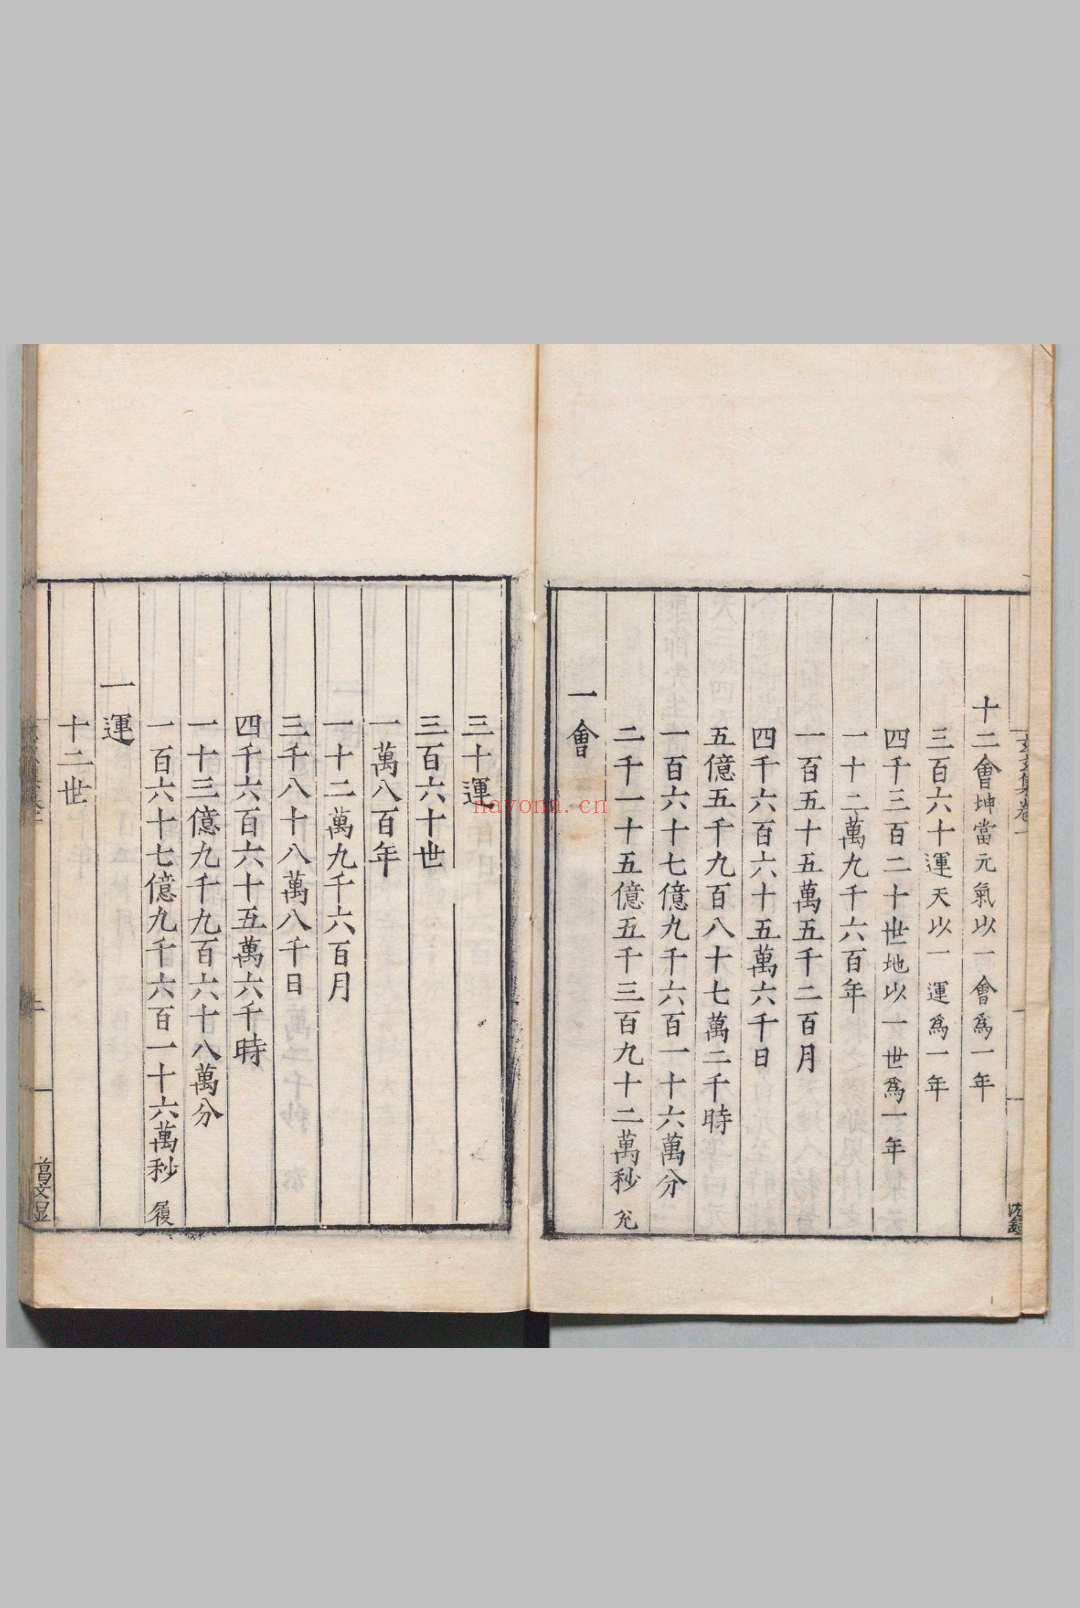 十二會坤當元氣以一會爲一年
三百六十運天以一運爲一年
四千三百二十世地以一世爲一年
一十二萬九千六百年
一百五十五萬五千二百月
四千六百六十五萬六千日
五億五千九百八十七萬二千時
一百六十七億九千六百一十六萬分
二千一十五億五千三百九十二萬秒 兊
一會
三十運
三百六十世
一萬八百年
一十二萬九千六百月
三千八十八萬八千日
四千六百六十五萬六千時
一十三億九千九百六十八萬分
一百六十七億九千六百一十六萬秒 履
一運
十二世
navona.cn